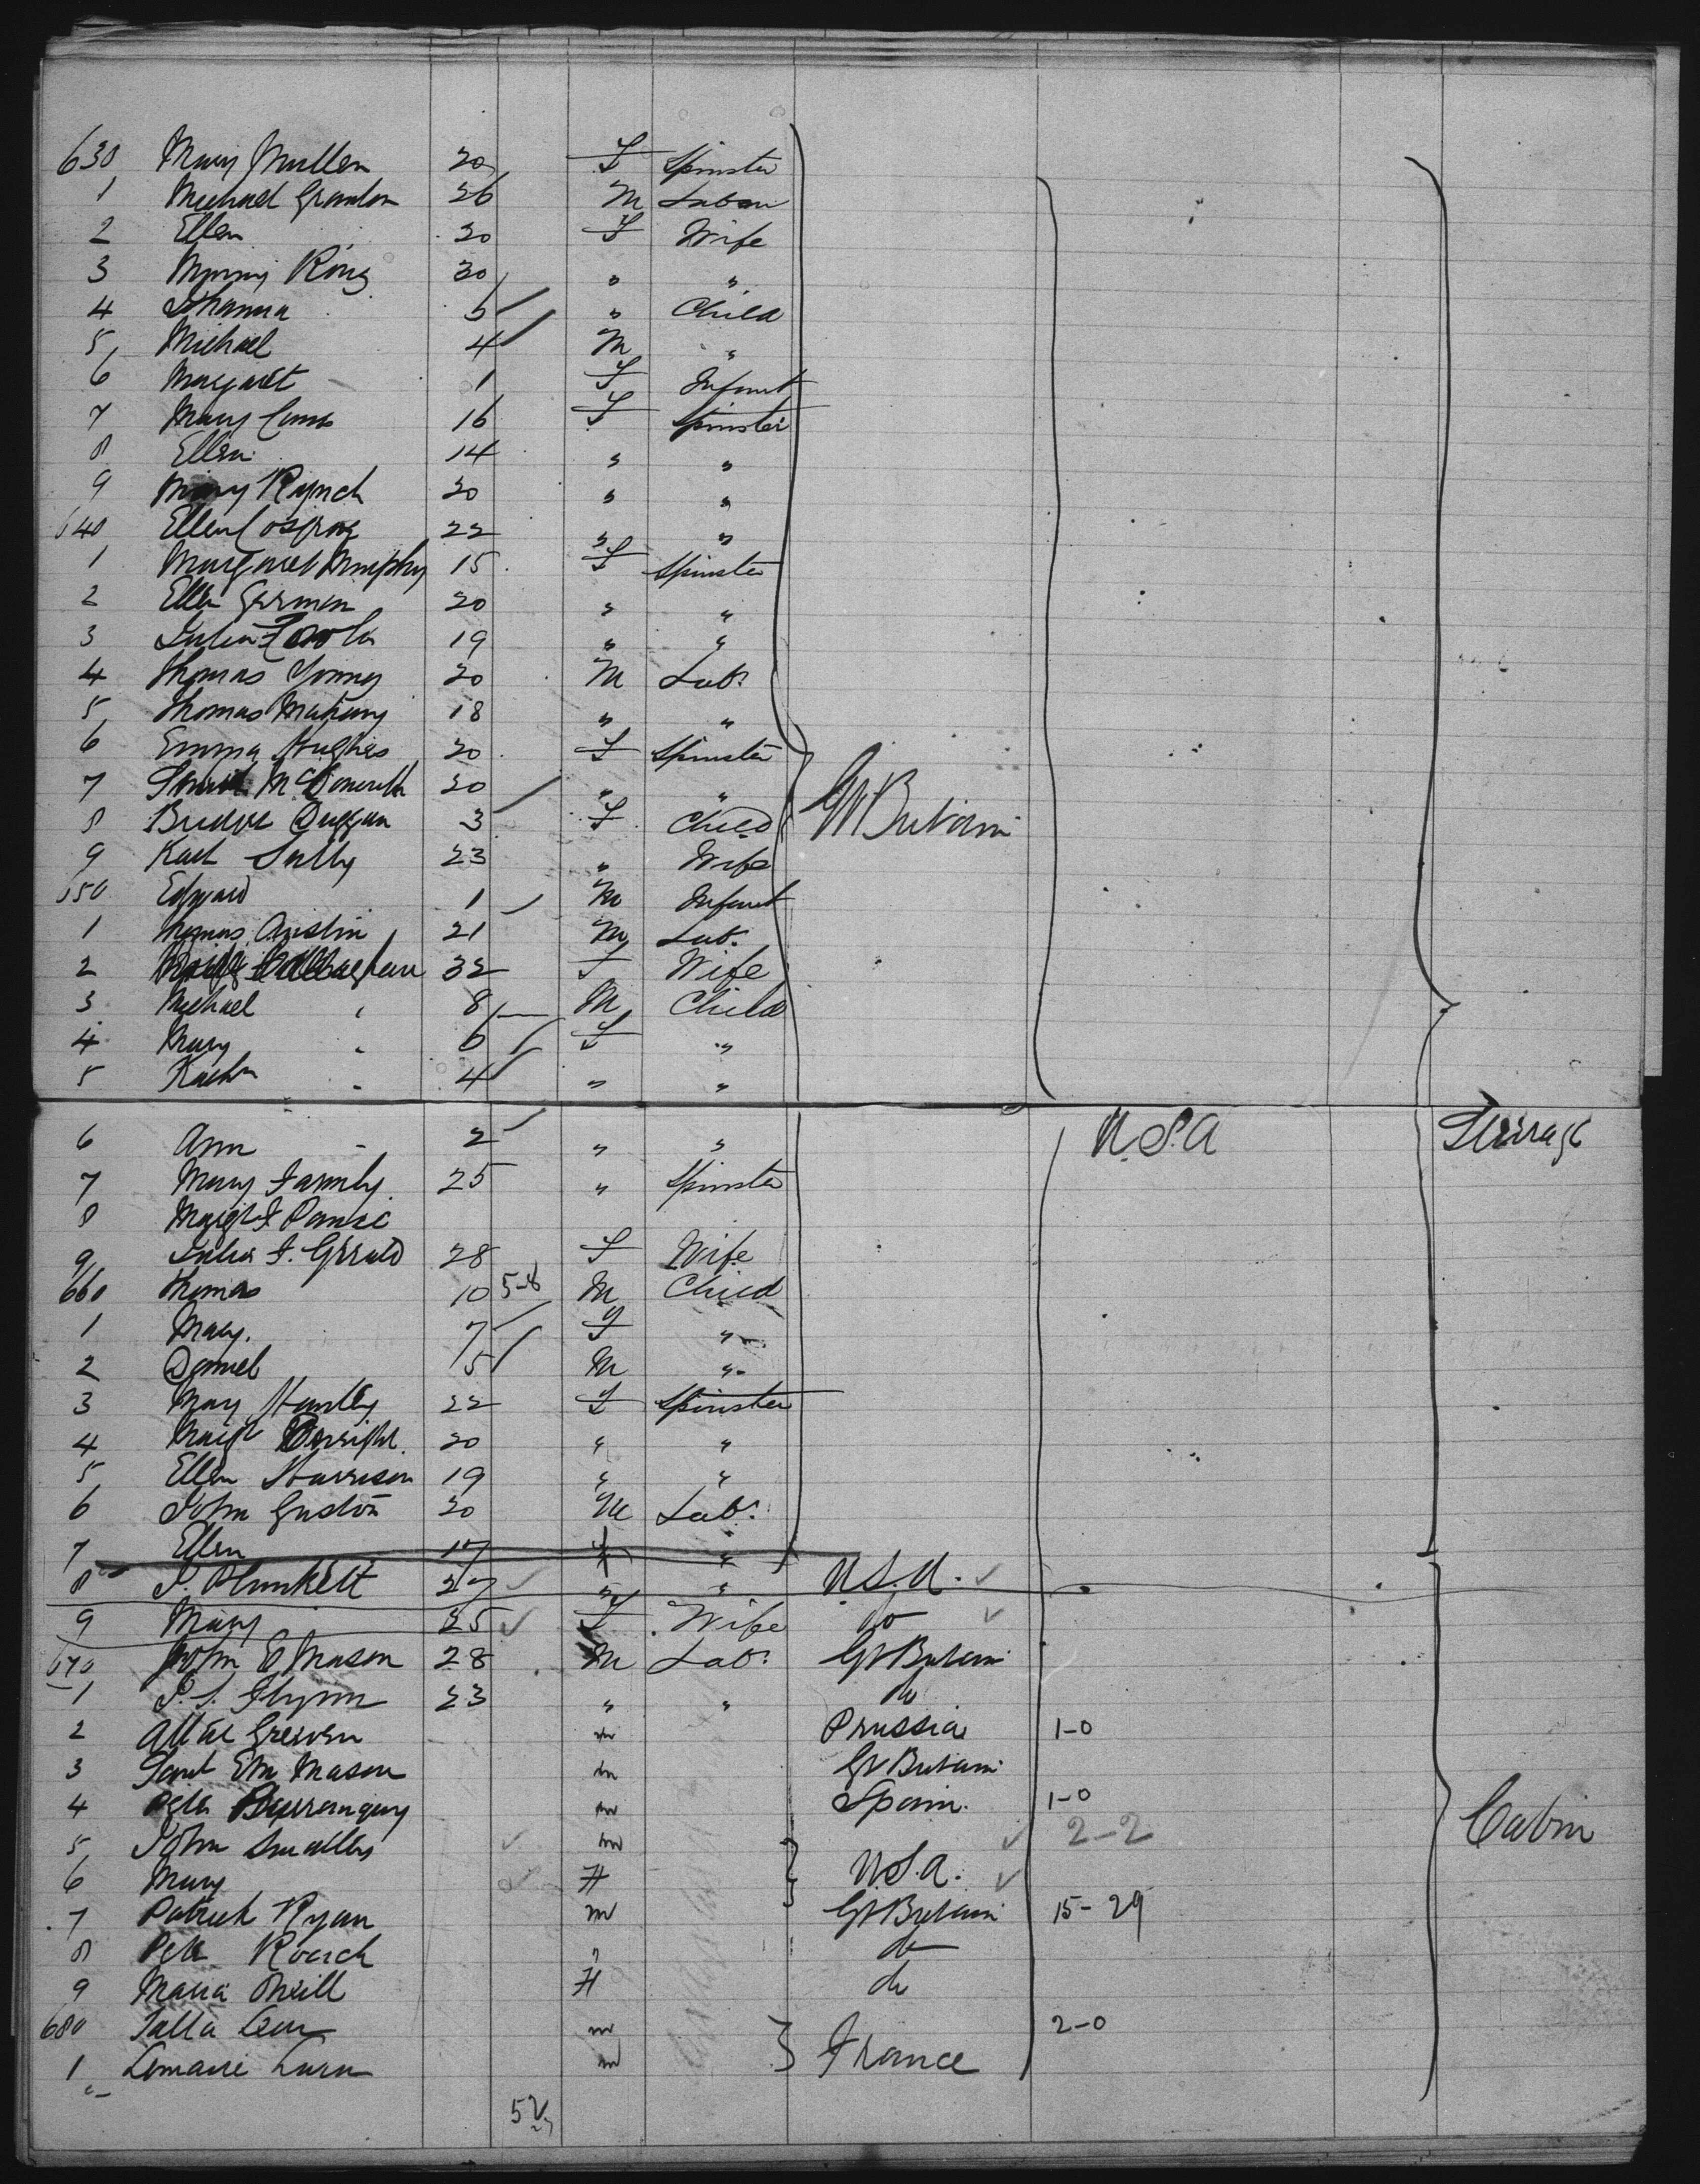 630 Mary Mullen 20 F Spinster
1 Michael 26 M Labou
2 Ellen 20 F Wife
3 King 30 " "
4 Johanna 5 " Child
5 Michael 4 M "
6 Margaret 1 F Infant
7 Mary 16 F Spinster
8 Ellen 14 " "
9 Mary Rynch 20 " "
640 Ellen 22 " "
1 Margaret Murphy 15 F Spinster
2 Ellen German 20 " "
3 Julia 19 " "
4 Thomas Young 20 M Lab.
5 Thomas Mahony 18 " "
6 Emma Hughes 20 F Spinster
7 20 " "
8 Duggan 3 F Child Gt Britain
9 Kate Sully 23 " Wife
650 Edward 1 M Infant
1 Thomas Austin 21 M Lab.
2 32 F Wife
3 Michael " 8 M Child
4 Mary " 6 F "
5 " 4 " "
6 Ann " 2 " " U.S.A Steerage
7 Mary 25 " Spinster
8 Margt
9 Julia F. Gerald 28 F Wife
660 Thomas 10 5-8 M Child
1 Mary. 7 F "
2 Daniel 5 M "
3 Mary 22 F Spinster
4 Margt 20 " "
5 Ellen Harrison 19 " "
6 John Guston 20 M Lab.
7 Ellen 17 "
8 P. Plunkett 27 " " U.S.A.
9 Mary 25 F Wife do
670 John E Mason 28 M Lab. Gt Britain
1 P. S. Flynn 23 " " do
2 Greiven m Prussia 1-0
3 Mason m Gt Britain
4 Peter m Spain. 1-0
5 John Smalley m 2-2 Cabin
6 Mary F U.S.A.
7 Patrick Ryan m Gt Britain 15-29
8 Peter Roach " do
9 Maria Oneill F do
680 m 2-0
1 Lemaire m France
52